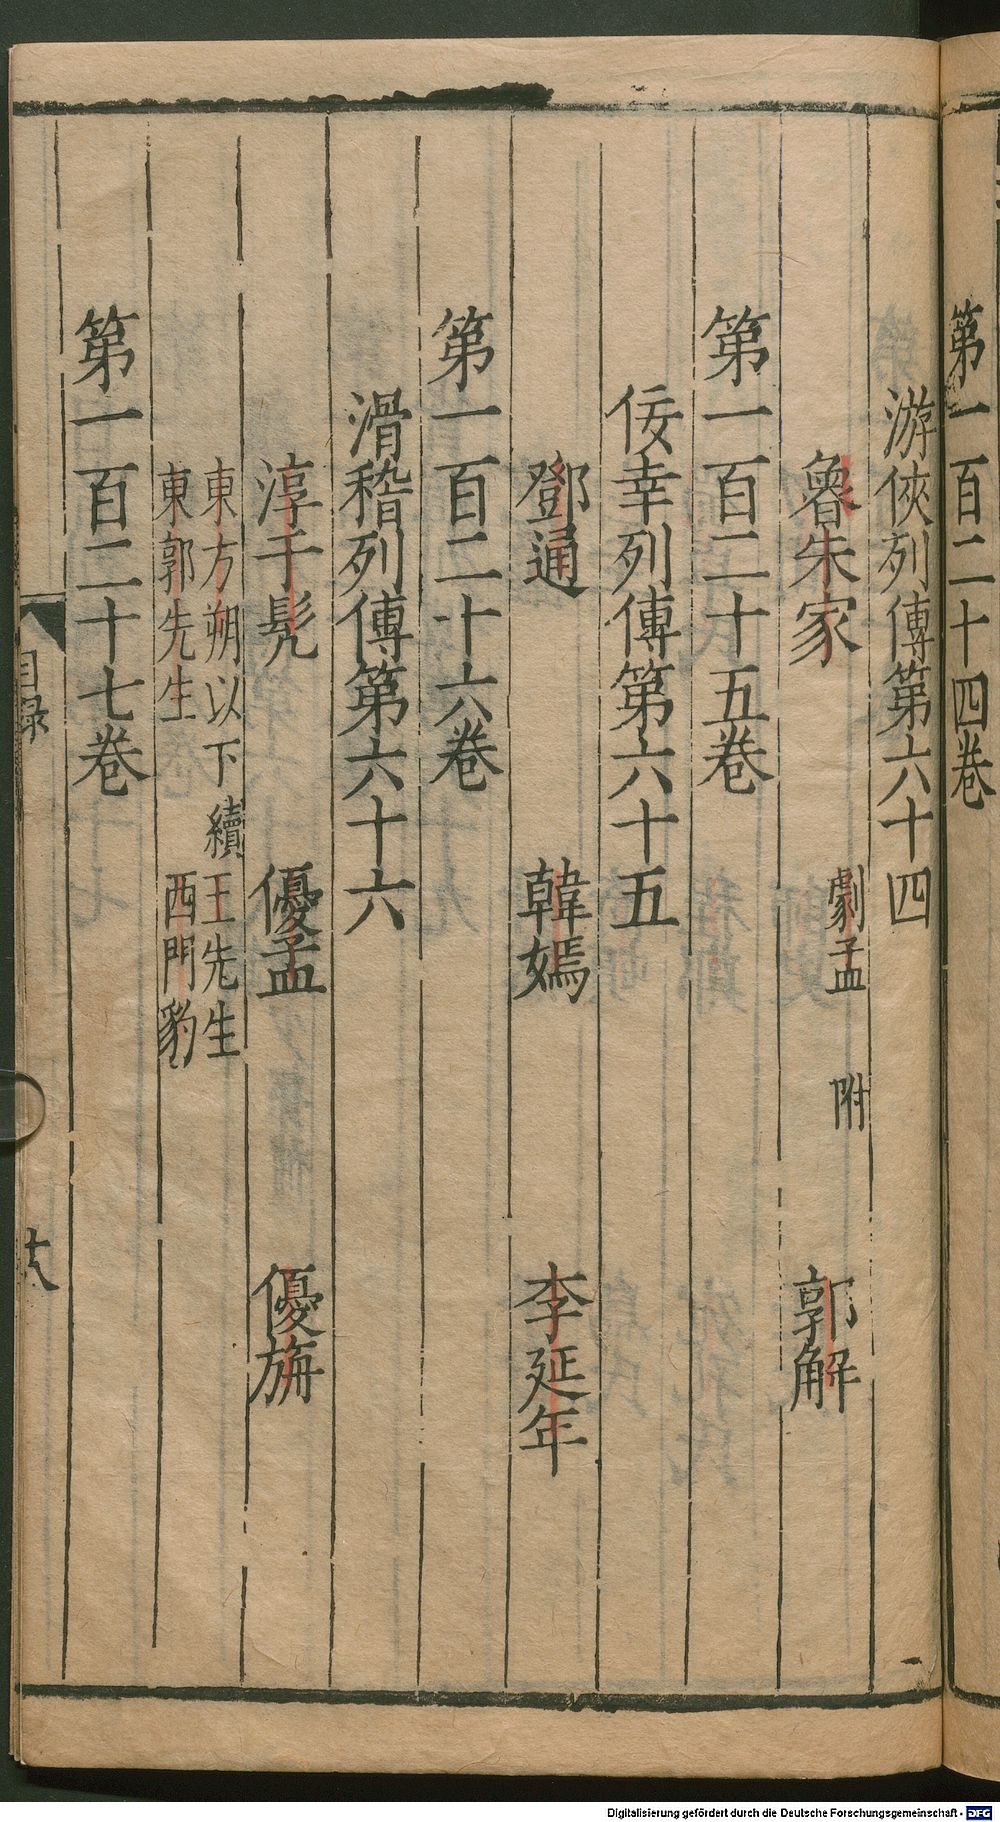 第一百二十四卷
游俠列傳第六十四
魯朱家 劇孟 附 郭解
第一百二十五卷
佞幸列傳第六十五
鄧通 韓嫣 李延年
第一百二十六卷
滑稽列傳第六十六
淳于髡 優孟 優旃
東方朔以下續 王先生
東郭先生 西門豹
第一百二十七卷
目録
十八
Digitalisierung gefördert durch die Deutsche Forschungsgemeinschaft - DFG